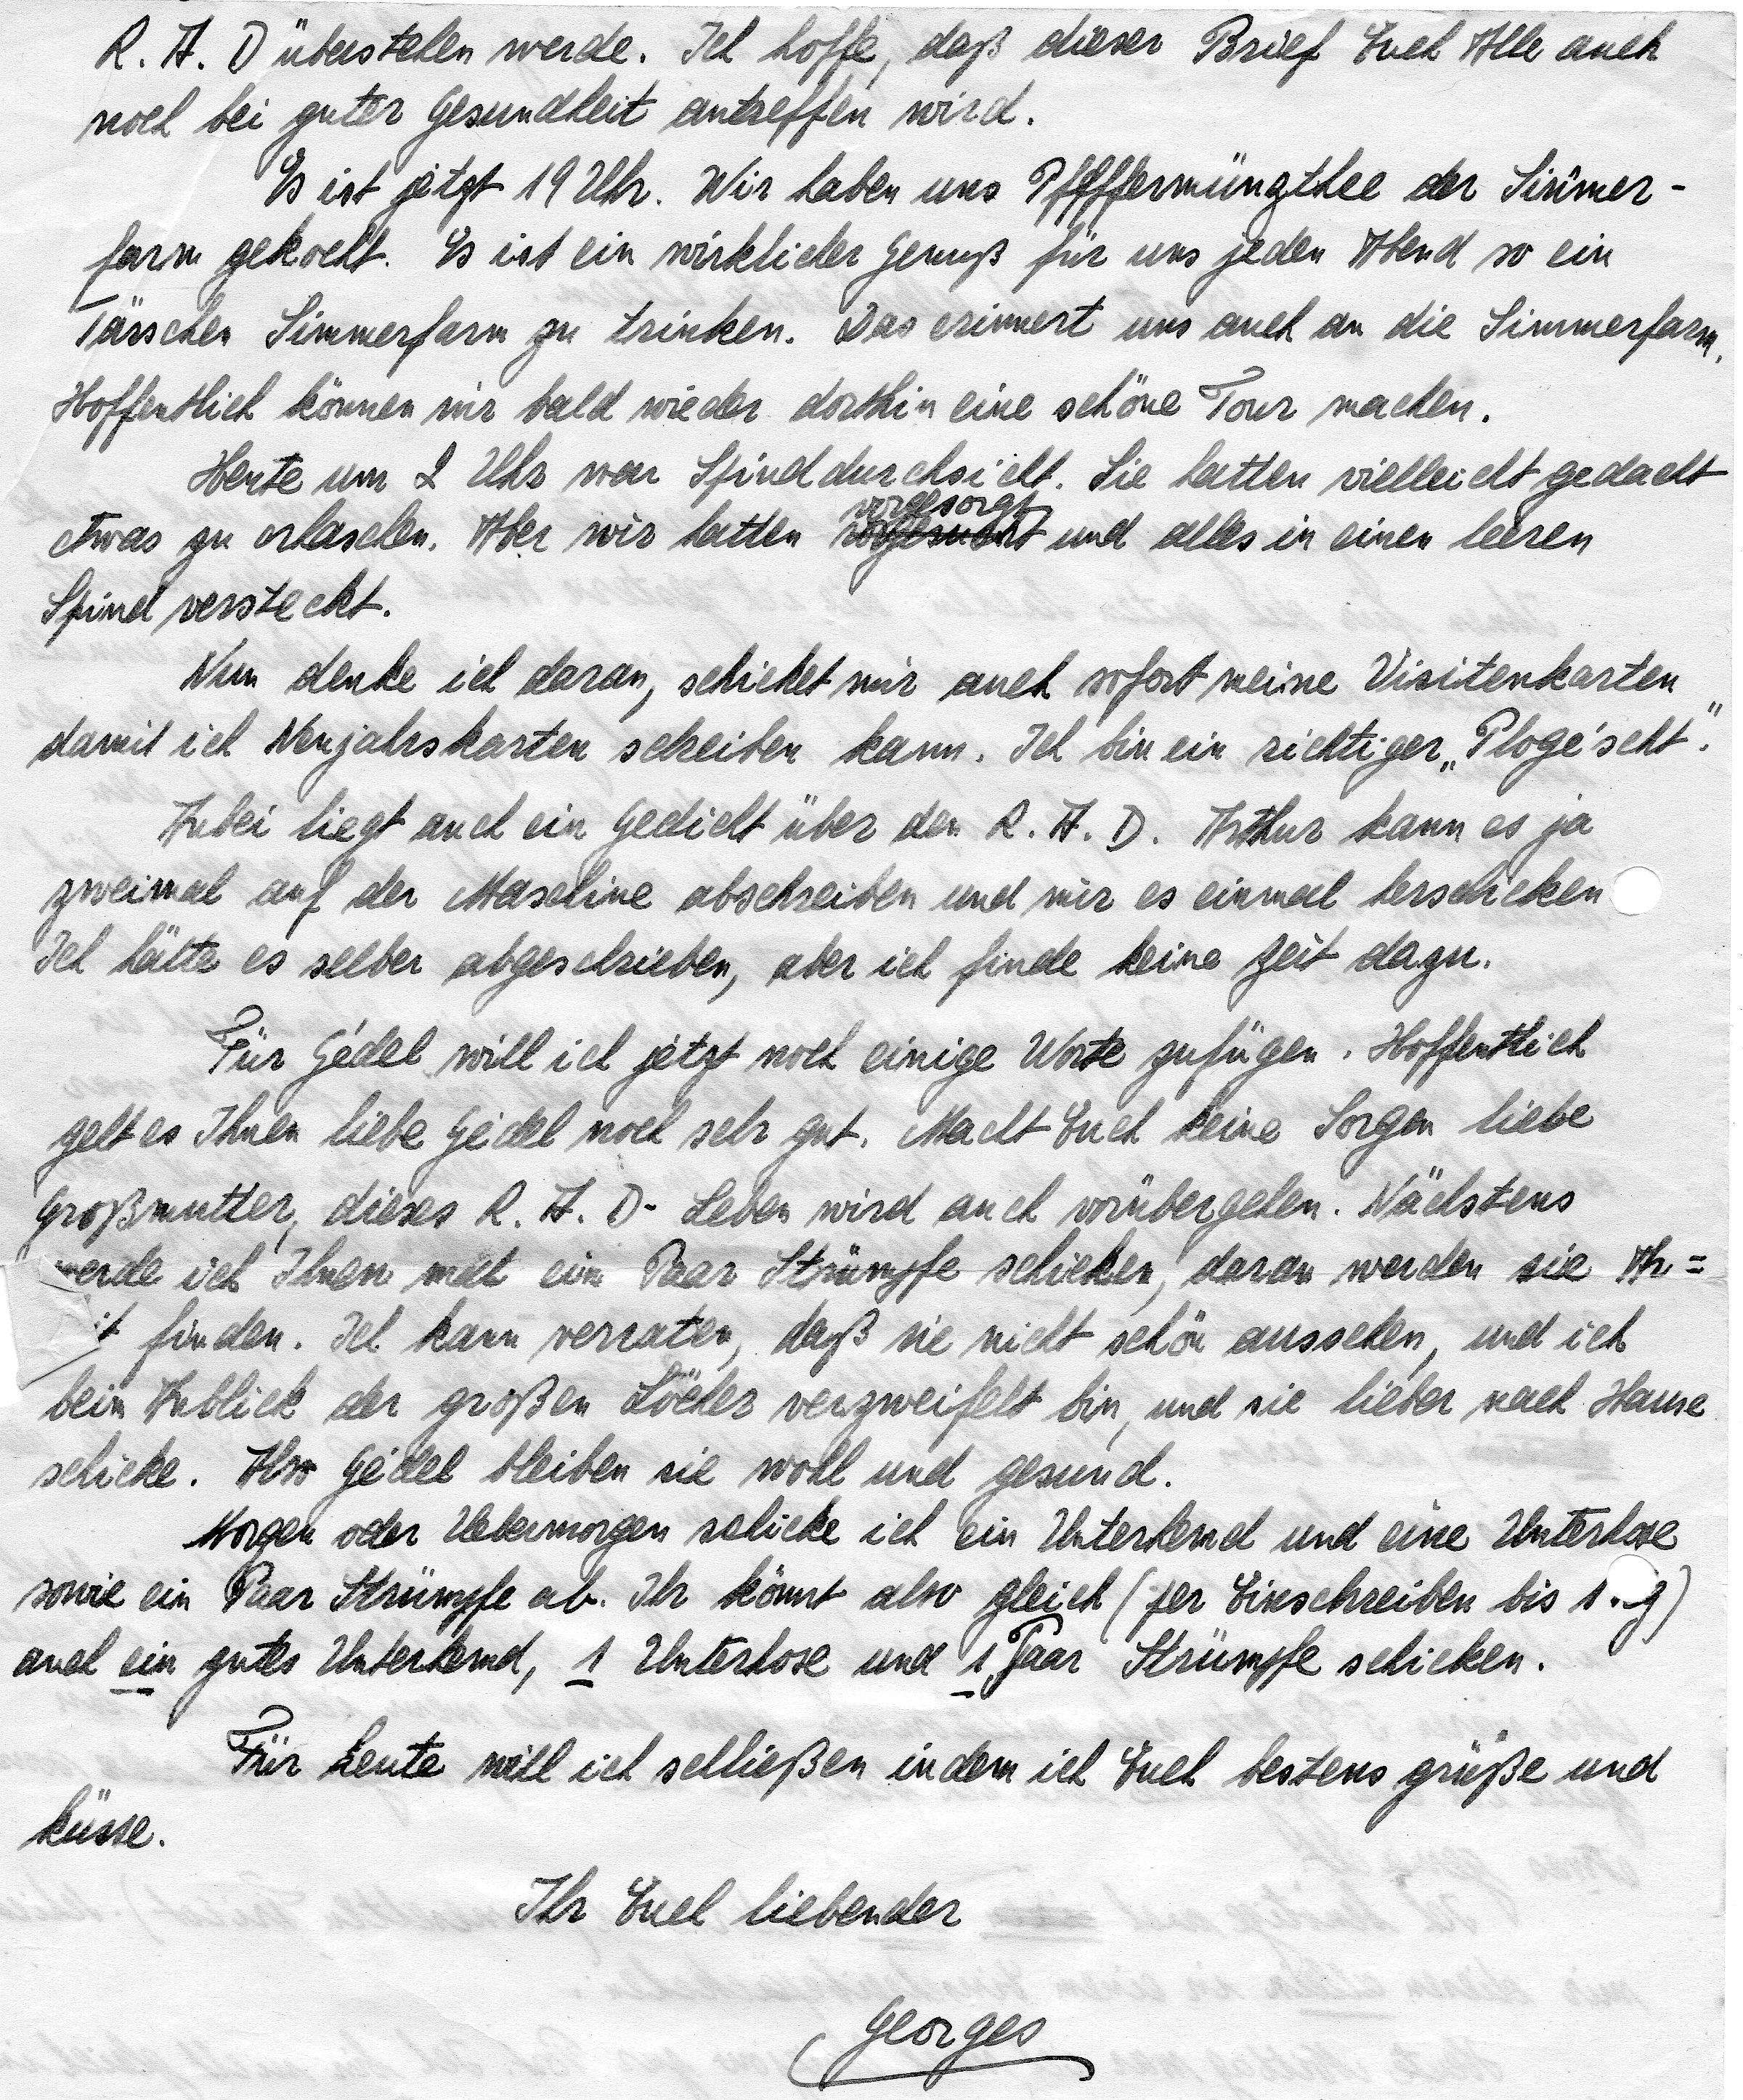 R. A. D überstehen werde. Ich hoffe, daß dieser Brief Euch Alle auch
noch bei guter Gesundheit antreffen wird.
Es ist jetzt 19 Uhr. Wir haben uns Pfefffermünzthee der Simmer-
farm gekocht. Es ist ein wirklicher Genuß für uns jeden Abend so ein
Tässchen Simmerfarm zu trinken. Das erinnert uns auch an die Simmerfarm.
Hoffentlich können wir bald wieder dorthin eine schöne Tour machen.
Heute um 2 Uhr war Spinddurchsicht. Sie hatten vielleicht gedacht
etwas zu erhaschen. Aber wir hatten vorgesorgt und alles in einen leeren
Spind versteckt.
Nun denke ich daran, schicket mir auch sofort meine Visitenkarten
damit ich Neujahrskarten schreiben kann. Ich bin ein richtiger „Plogéscht".
Anbei liegt auch ein Gedicht über den R. A. D. Arthur kann es ja
zweimal auf der Maschine abschreiben und mir es einmal herschicken
Ich hätte es selber abgeschrieben, aber ich finde keine Zeit dazu.
Für Gédel will ich jetzt noch einige Worte zufügen. Hoffentlich
geht es Ihnen liebe Gédel noch sehr gut. Macht Euch keine Sorgen liebe
Großmutter, dieses R. A. D- Leben wird auch vorübergehen. Nächstens
werde ich Ihnen mal ein Paar Strümpfe schicken, daran werden sie Ar=
it finden. Ich kann verraten, daß sie nicht schön aussehen, und ich
beim Anblick der großen Löcher verzweifelt bin, und sie lieber nach Hause
schicke. Also Gédel bleiben sie wohl und gesund.
Morgen oder Uebermorgen schicke ich ein Unterhemd und eine Unterhose
sowie ein Paar Strümpfe ab. Ihr könnt also gleich (per Einschreiben bis 1. g)
auch ein gutes Unterhemd, 1 Unterhose und 1 Paar Strümpfe schicken.
Für heute will ich schließen indem ich Euch bestens grüße und
küsse.
Ihr Euch liebender
Georges